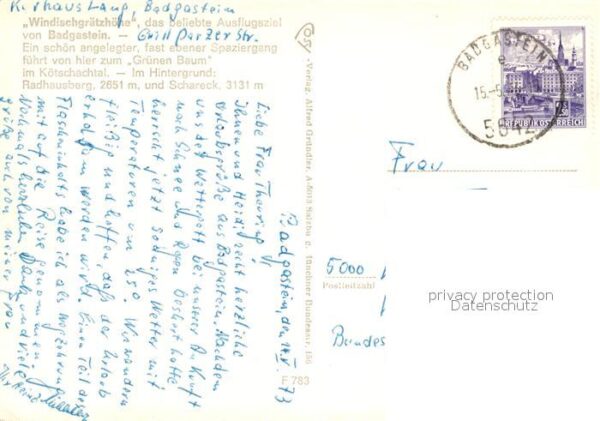 Kurhaus Lang, Badgastein
Grillparzer Str.
„Windischgrätzhöhe", das beliebte Ausflugsziel
von Badgastein. —
Ein schön angelegter, fast ebener Spaziergang
führt von hier zum „Grünen Baum"
im Kötschachtal. — Im Hintergrund:
Radhausberg, 2651 m, und Schareck, 3131 m
Badgastein, den 14.V.73
Liebe Frau
Ihnen und Heidi recht herzliche
Urlaubsgrüße aus Badgastein. Nachdem
uns der Wettergott bei unserer Ankunft
nach Schnee und Regen beschert hatte
herrscht jetzt sonniges Wetter mit
Temperaturen um 25°. Wir wandern
fleißig und hoffen, daß der Urlaub
erholsam werden wird. Einen Teil des
Flascheninhalts habe ich als Wegzehrung
mit auf die Reise genommen
Nochmals herzlichen Dank und viele
Grüße auch von meiner Frau
Ihr
Verlag Alfred Gründler, Salzburg, Münchner Bundesstr. 156
F 783
BADGASTEIN
15.-5.
5640
REPUBLIK ÖSTERREICH
Frau
5000
Postleitzahl
Bundes
privacy protection
Datenschutz